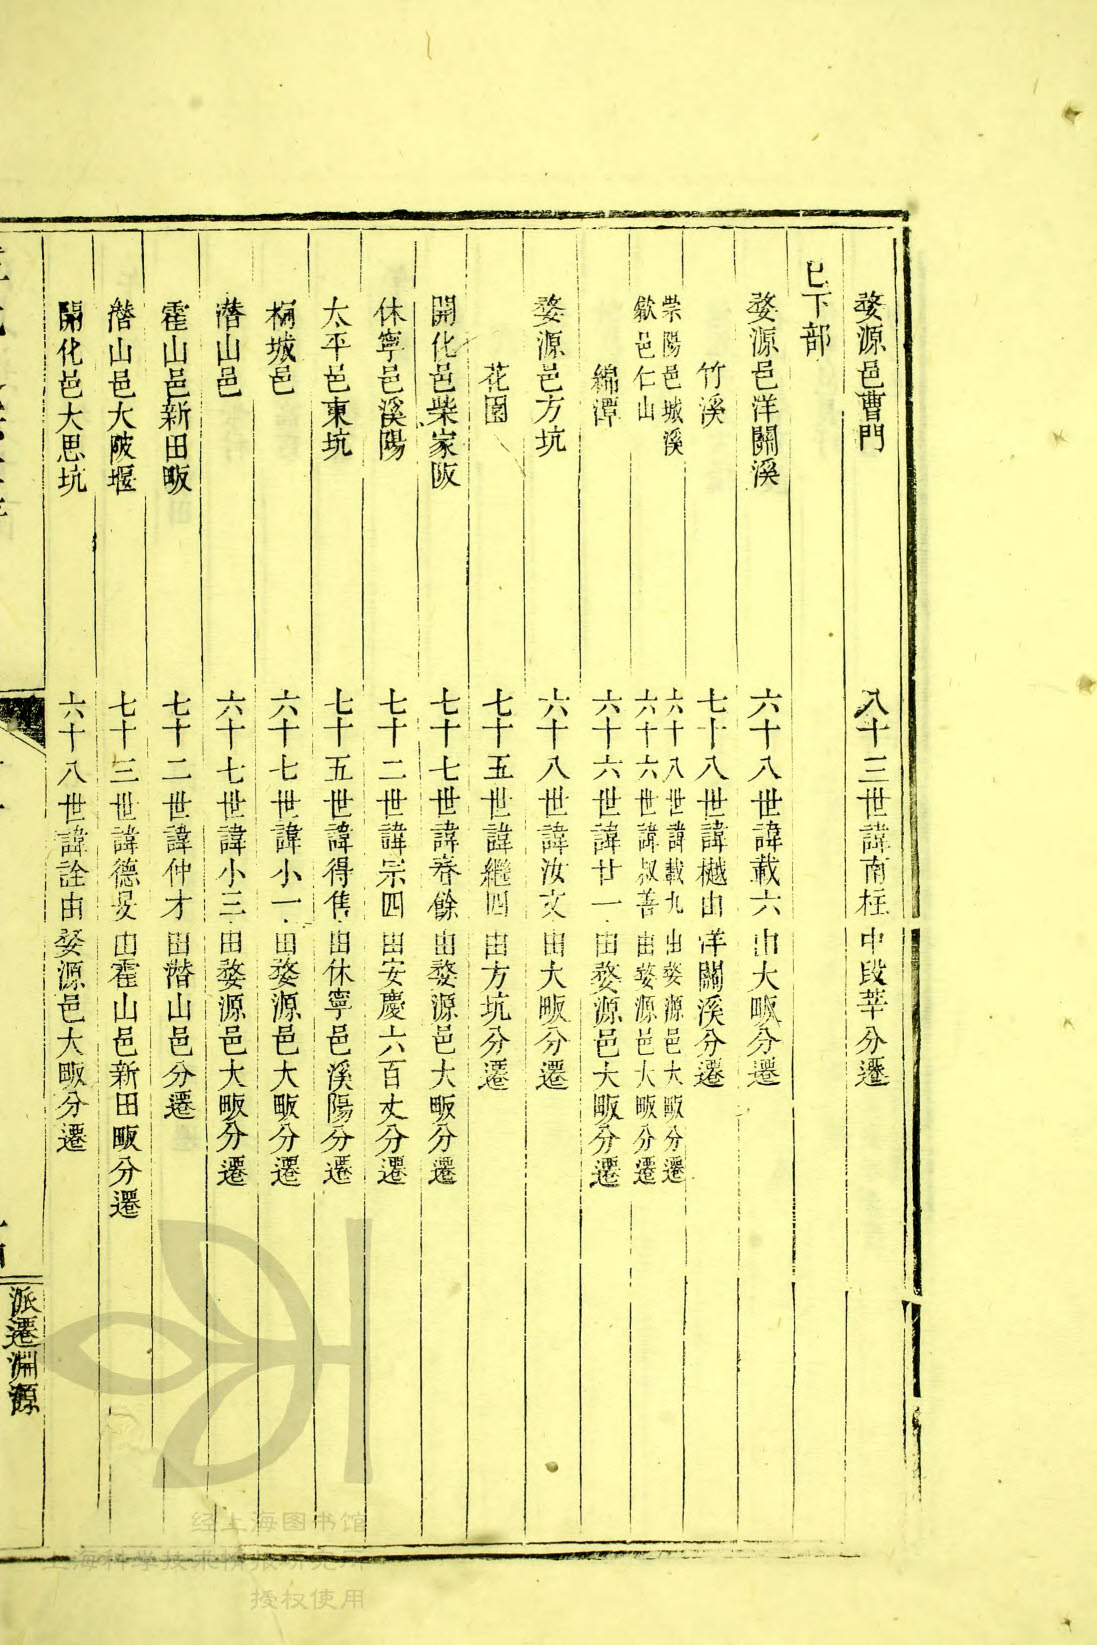 婺源邑曹門　八十三世諱南柱由段莘分遷
巳下部
婺源邑洋關溪　六十八世諱載六由大畈分遷
竹溪　七十八世諱樾由洋關溪分遷
崇陽邑城溪　六十八世諱載九由婺源邑大畈分遷
歙邑仁山　六十六世諱叔善由婺源邑大畈分遷
綿潭　六十六世諱廿一由婺源邑大畈分遷
婺源邑方坑　六十八世諱汝文由大畈分遷
花園　七十五世諱繼四由方坑分遷
開化邑柴家阪　七十七世諱春餘由婺源邑大畈分遷
休寧邑溪陽　七十二世諱宗四由安慶六百丈分遷
太平邑東坑　七十五世諱得售由休寧邑溪陽分遷
桐城邑　六十七世諱小一由婺源邑大畈分遷
潛山邑　六十七世諱小三由婺源邑大畈分遷
霍山邑新田畈　七十二世諱仲才由潛山邑分遷
潛山邑大陂堰　七十三世諱德旻由霍山邑新田畈分遷
開化邑大思坑　六十八世諱詮由婺源邑大畈分遷
派遷淵源
经上海图书馆
上海科学技术情报研究所
授权使用